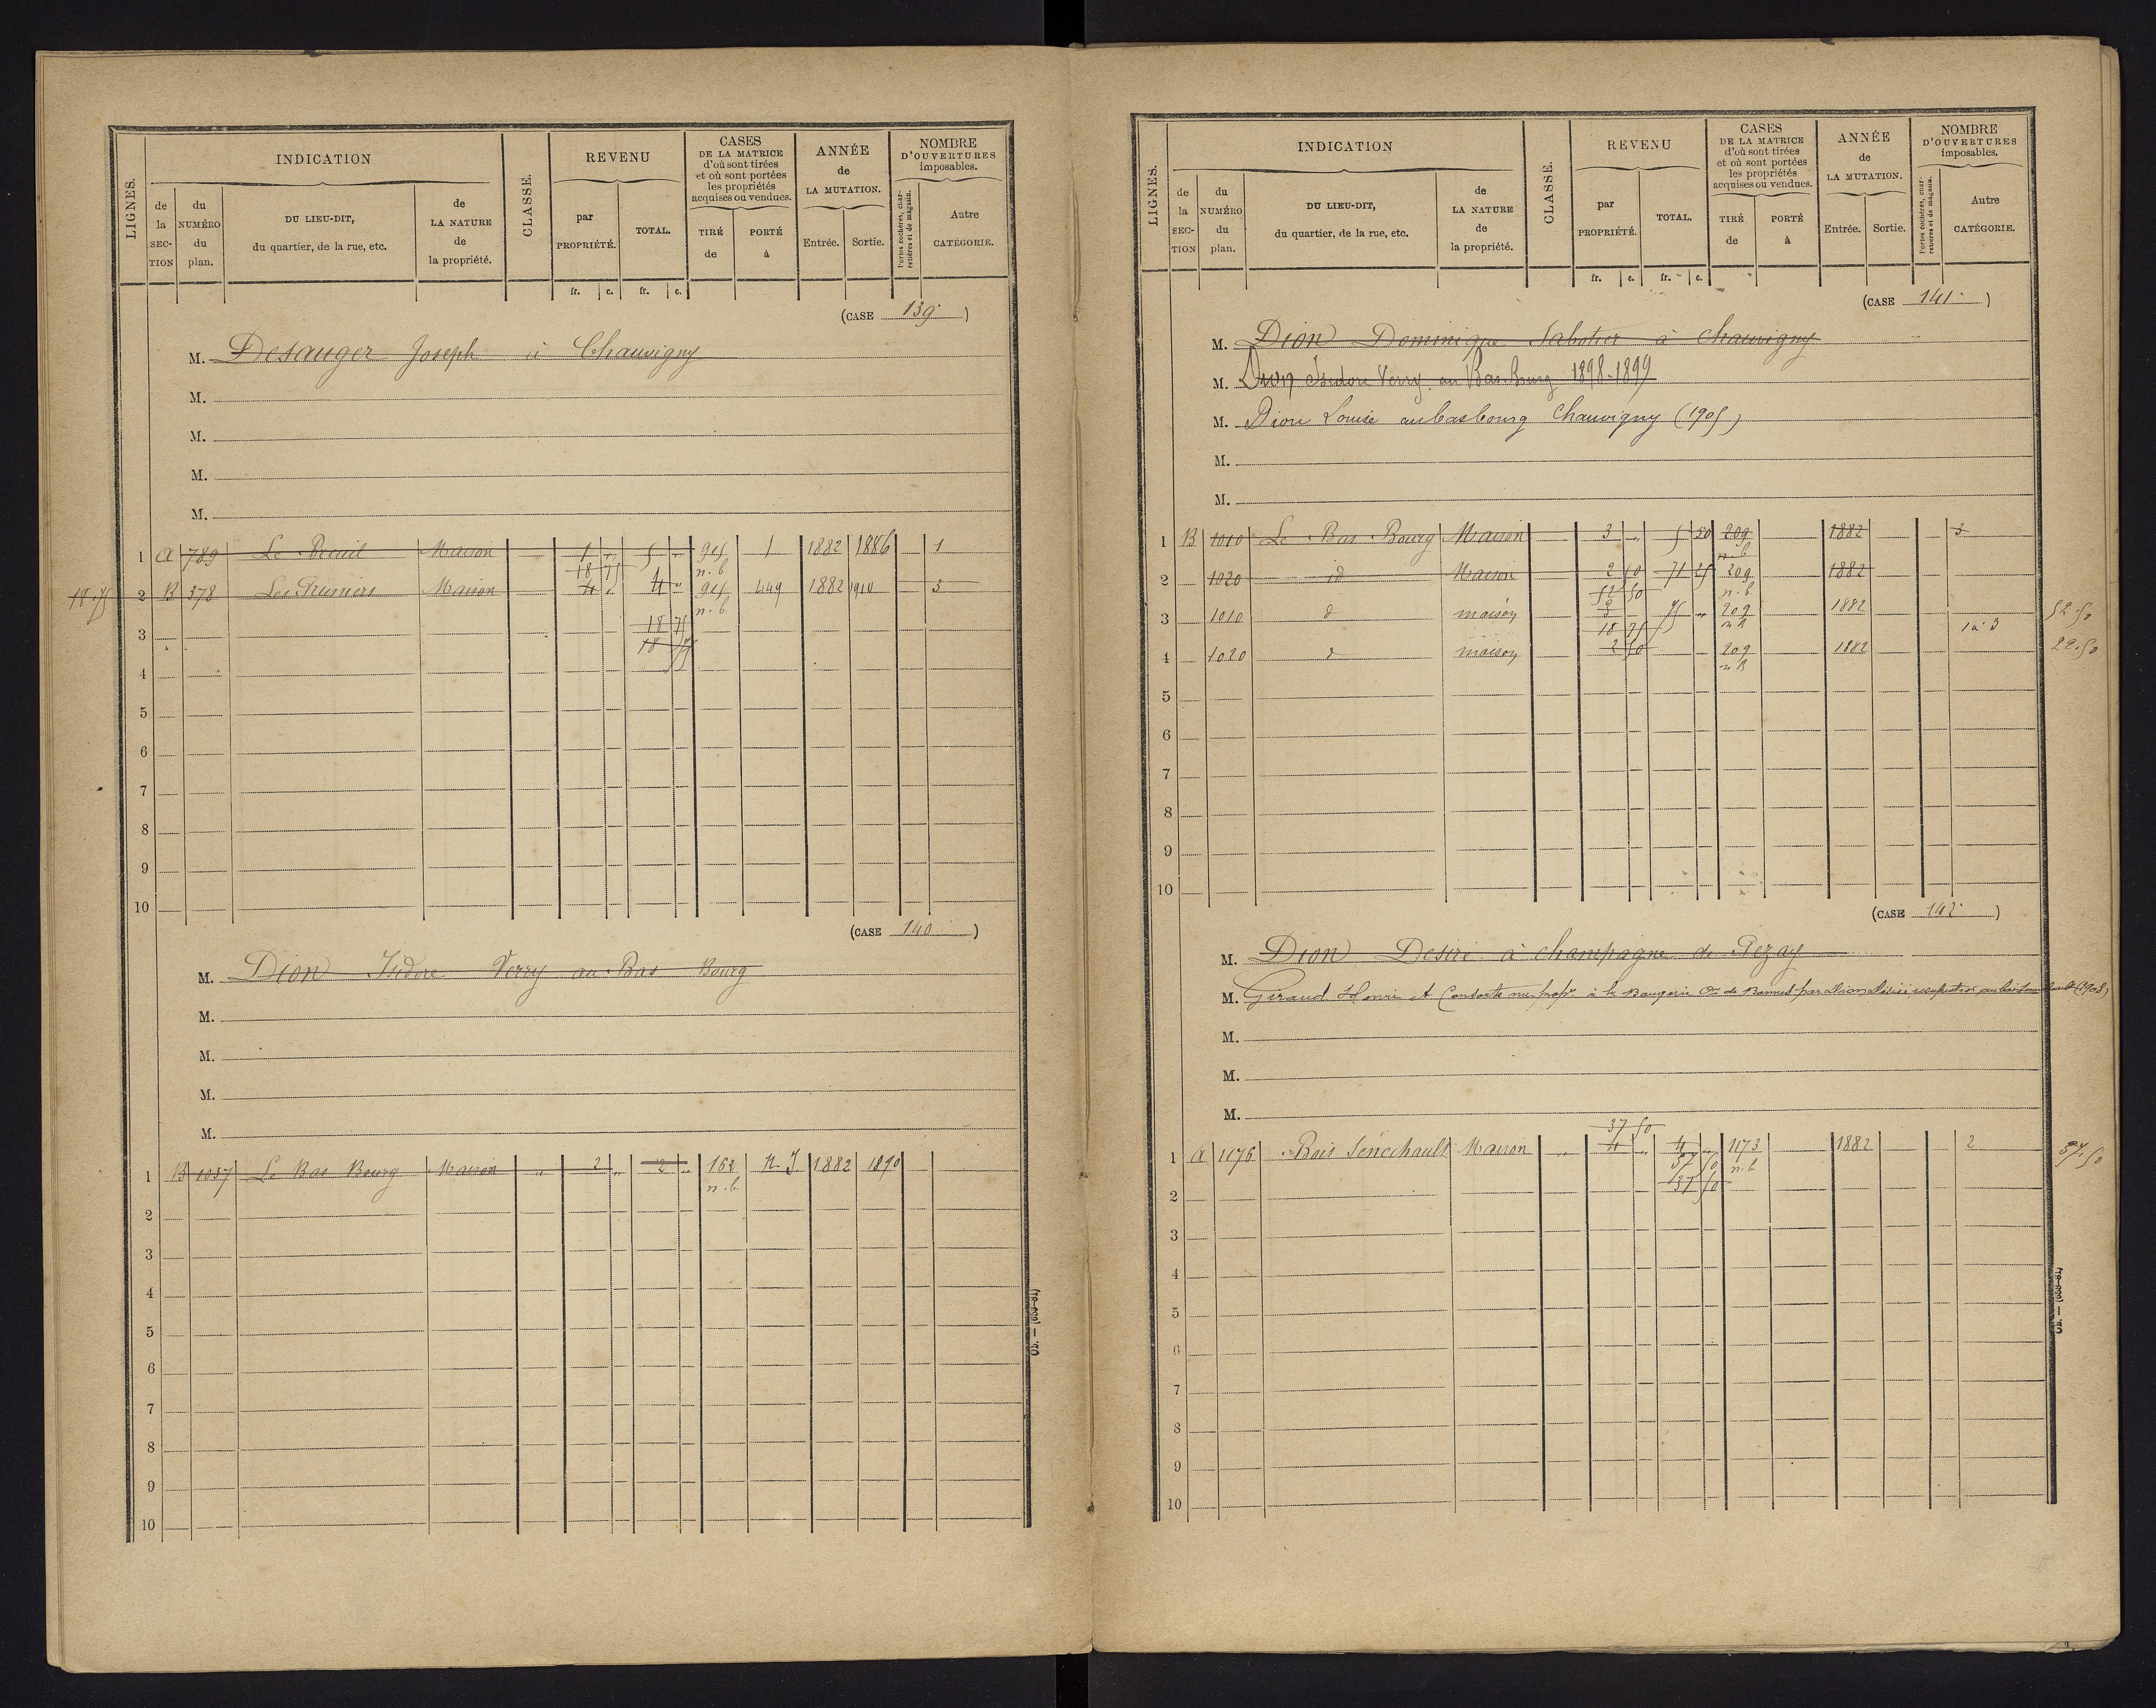 LIGNES.
INDICATION
de la SECTION
du NUMÉRO du plan.
DU LIEU-DIT,
du quartier, de la rue, etc.
de LA NATURE de la propriété.
CLASSE.
REVENU
par PROPRIÉTÉ.
TOTAL.
fr. c. fr. c.
CASES
DE LA MATRICE
d'où sont tirées
et où sont portées
les propriétés
acquises ou vendues.
TIRÉ de
PORTÉ à
ANNÉE
de
LA MUTATION.
Entrée. Sortie.
NOMBRE
D'OUVERTURES
imposables.
Portes cochères, charretières et de magasin.
Autre
CATÉGORIE.
(CASE 139 )
M. Desauger Joseph à Chauvigny
M.
M.
M.
M.
1 A 789 Le Breuil Maison 1 „ 5 „ 945 1 1882 1886 1
18 75 n.b
18.75 2 B 378 Maison 4 „ 4 „ 945 449 1882 1910 3
n.b
3 18 75
18 75
4
5
6
7
8
9
10
(CASE 140 )
M. Dion Isidore Verry au Bas Bourg
M.
M.
M.
M.
1 B 1037 Le Bas Bourg Maison „ 2 „ 2 „ 162 n. J 1882 1890
n.b
2
3
4
5
6
7
8
9
10
LIGNES.
INDICATION
de la SECTION
du NUMÉRO du plan.
DU LIEU-DIT,
du quartier, de la rue, etc.
de LA NATURE de la propriété.
CLASSE.
REVENU
par PROPRIÉTÉ.
TOTAL.
fr. c. fr. c.
CASES
DE LA MATRICE
d'où sont tirées
et où sont portées
les propriétés
acquises ou vendues.
TIRÉ de
PORTÉ à
ANNÉE
de
LA MUTATION.
Entrée. Sortie.
NOMBRE
D'OUVERTURES
imposables.
Portes cochères, charretières et de magasin.
Autre
CATÉGORIE.
(CASE 141 )
M. Dion Dominique Sabotier à Chauvigny
M. Dion Isidore Verry au Bas-bourg 1898-1899
M. Dion Louise au bas bourg Chauvigny (1905)
M.
M.
1 B 1010 Le Bas Bourg Maison 3 „ 5 50 209 1882 3
n.b
2 1020 id Maison 2 50 71 25 209 1882
52 50 n.b
3 1010 d maison 75 „ 209 1882 52.50
18 75 1 à 3
4 1020 d maison 2 50 209 1882 22.50
5
6
7
8
9
10
(CASE 142 )
M. Dion Desiré à champagne de Pezay
M. Giraud Henri et Consorts nu-propr. à la Baugerie Cne de Bonnes par Dion Désiré (1908)
M.
M.
M.
37 50
1 A 1176 Bois Sénéchault Maison „ 4 „ 4 „ 1173 1882 2 37.50
37 50 n.b
2 37 50
3
4
5
6
7
8
9
10